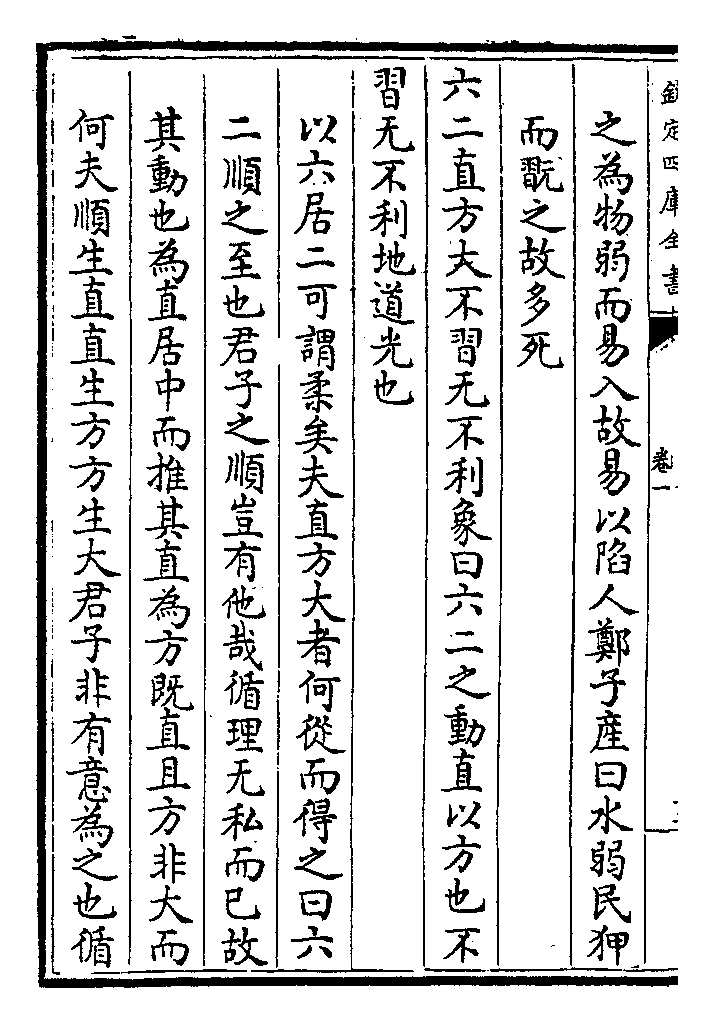 欽定四庫全書
卷一
之為物弱而易入故易以陷人鄭子產曰水弱民狎
而翫之故多死
六二直方大不習无不利象曰六二之動直以方也不
習无不利地道光也
以六居二可謂柔矣夫直方大者何從而得之曰六
二順之至也君子之順豈有他哉循理无私而已故
其動也為直居中而推其直為方既直且方非大而
何夫順生直直生方方生大君子非有意為之也循